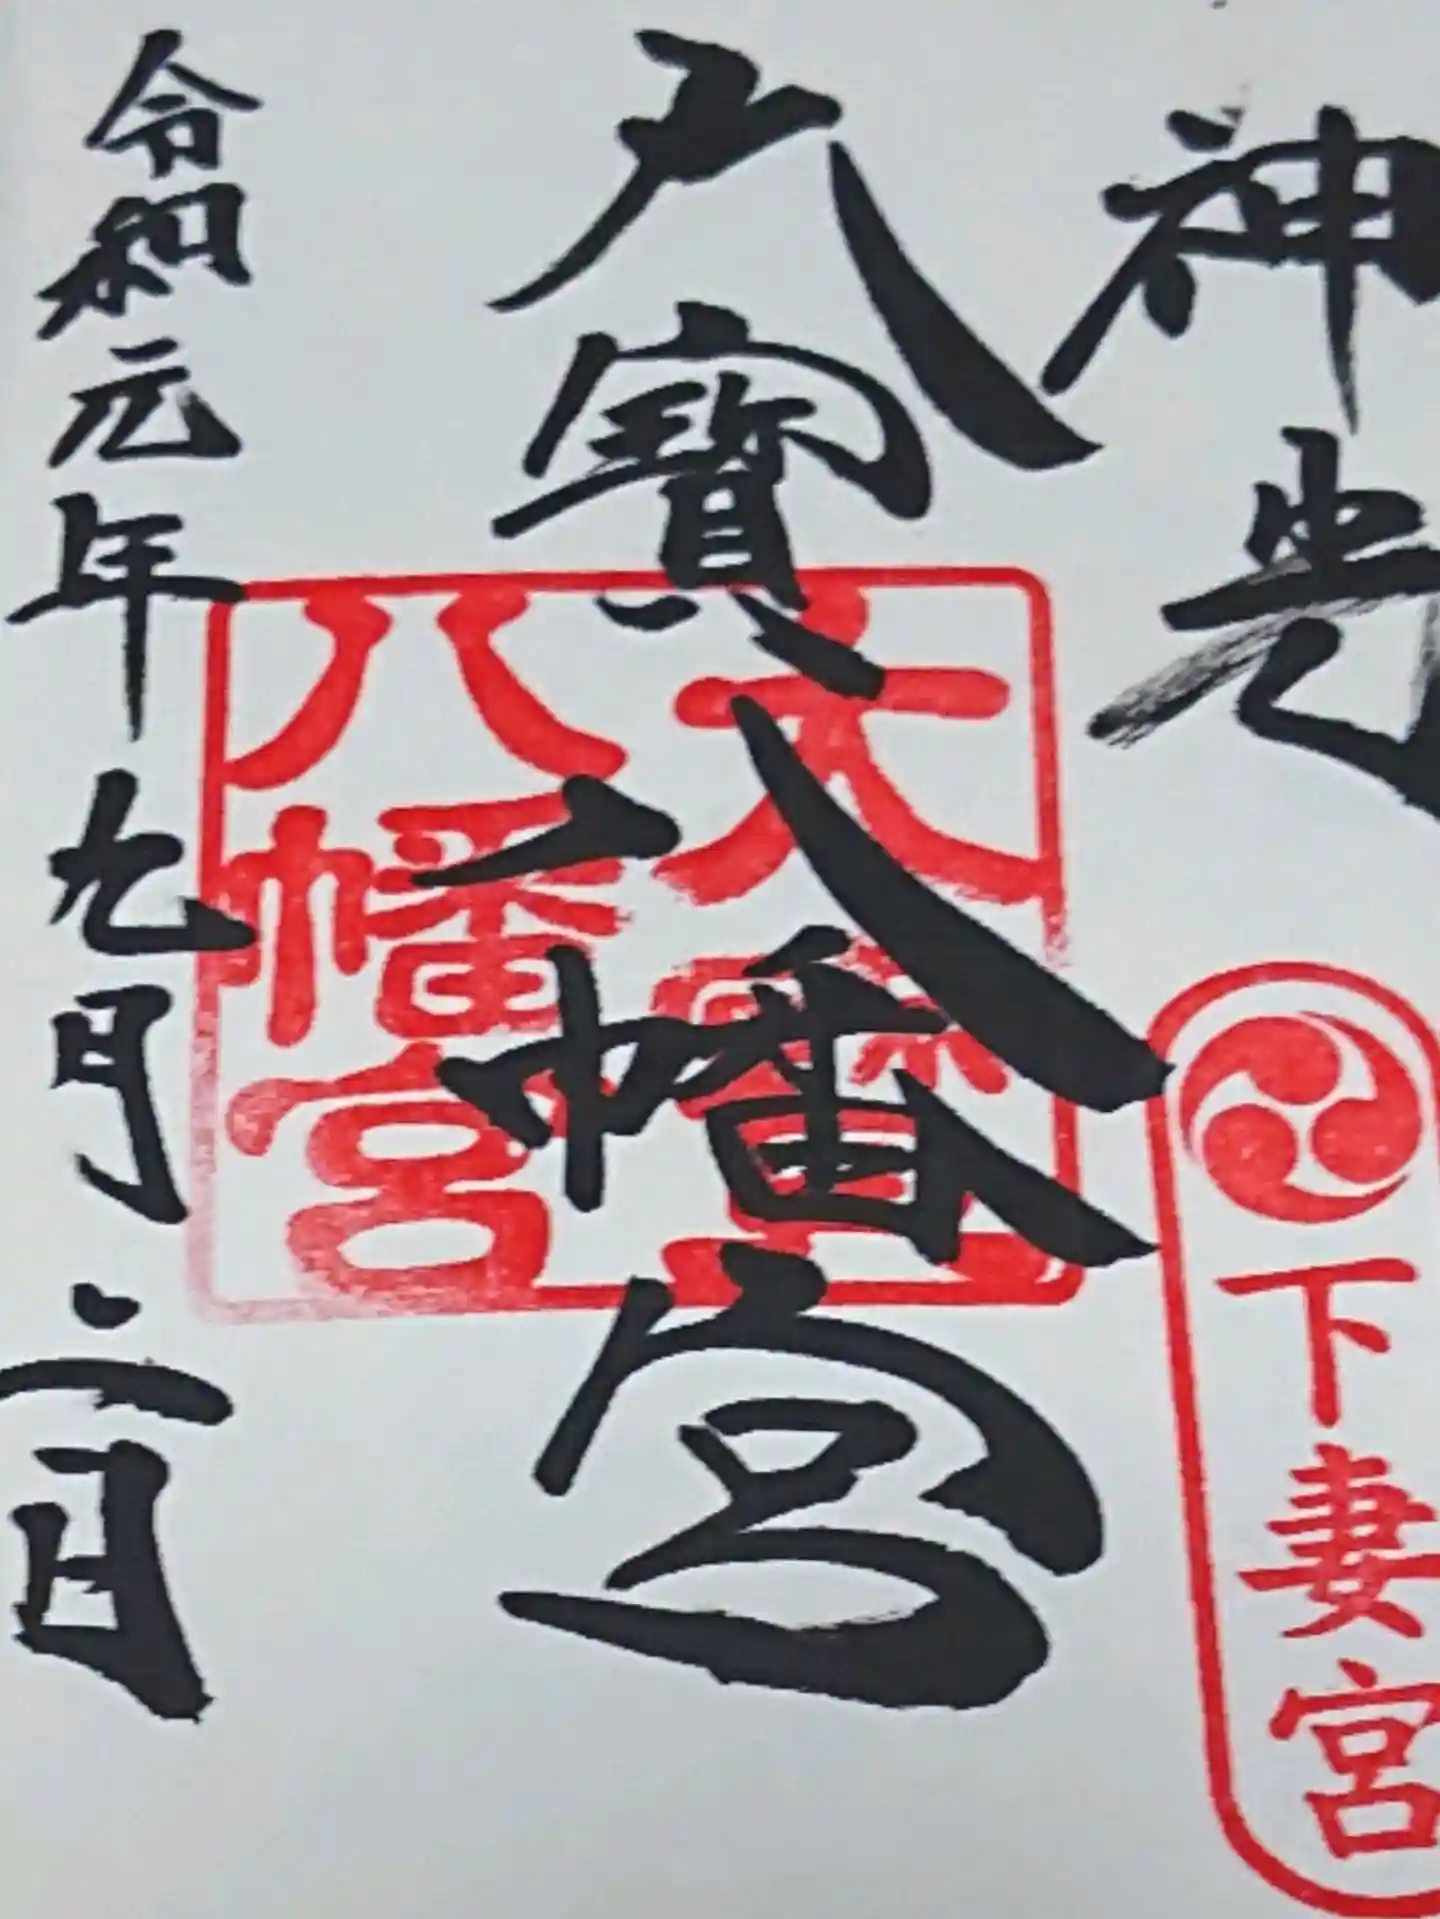 神光
大寶八幡宮
大寶
八幡宮
下妻宮
令和元年九月二日